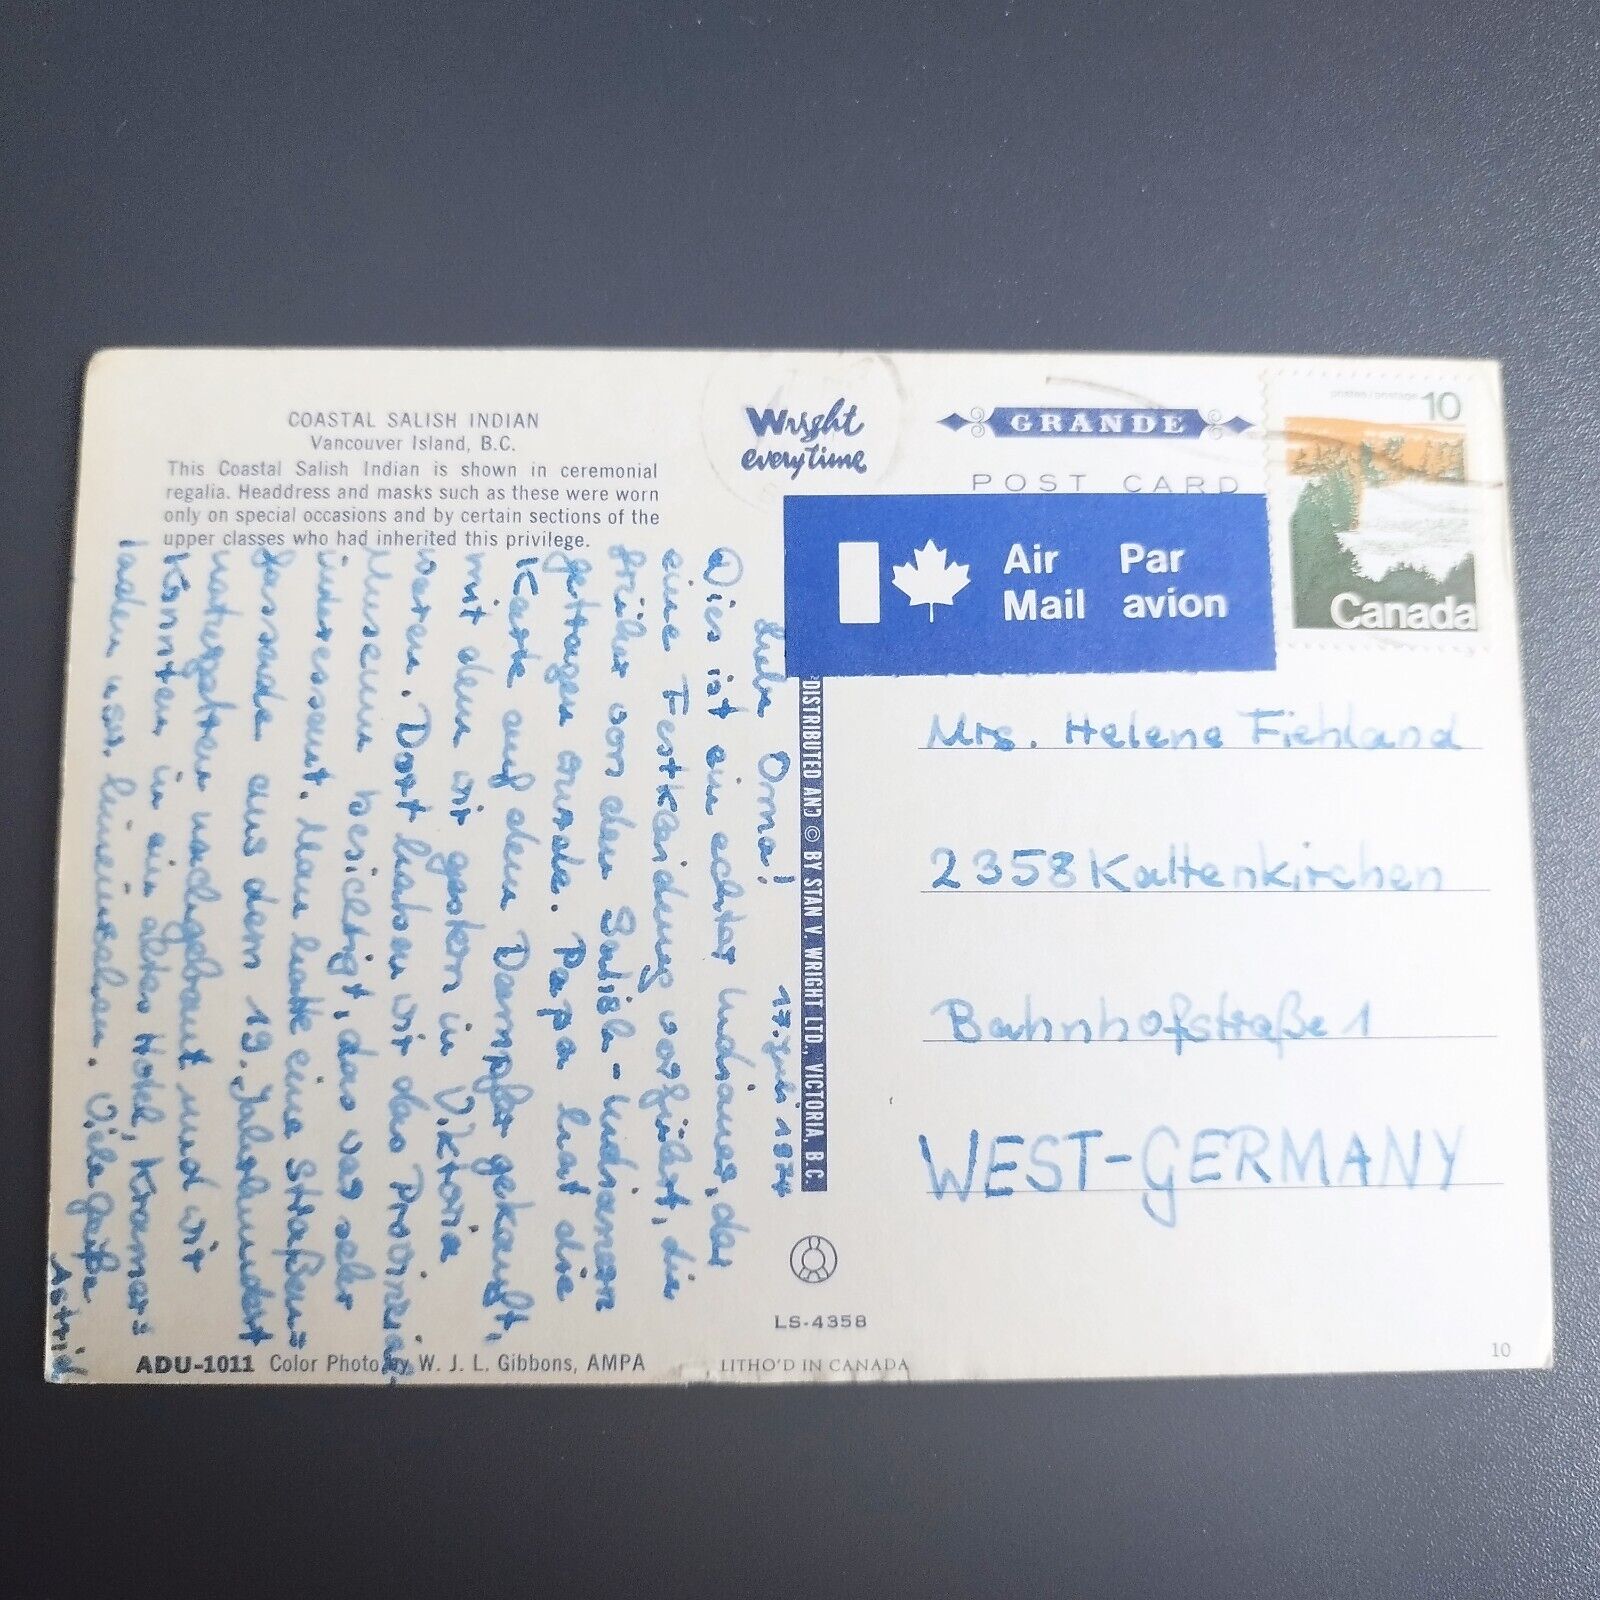 COASTAL SALISH INDIAN
Vancouver Island, B.C.
This Coastal Salish Indian is shown in ceremonial
regalia. Headdress and masks such as these were worn
only on special occasions and by certain sections of the
upper classes who had inherited this privilege.
Wright
everytime
GRANDE
POST CARD
postes/postage 10
Canada
Air Mail
Par avion
17. Juli 1974
Liebe Oma!
Dies ist ein echter Indianer, der
eine Festkleidung vorführt, die
früher von den Salish-Indianern
getragen wurde. Papa hat die
Karte auf dem Dampfer gekauft,
mit dem wir gestern in Viktoria
waren. Dort haben wir das Provinzial-
Museum besichtigt, das war sehr
interessant. Man hatte eine Straßen=
fassade aus dem 19. Jahrhundert
naturgetreu nachgebaut und wir
konnten in ein altes Hotel, Kramer=
laden usw. hineinsehen. Viele Grüße
Astrid
Mrs. Helene Fiehland
2358 Kaltenkirchen
Bahnhofstraße 1
WEST-GERMANY
DISTRIBUTED AND © BY STAN V. WRIGHT LTD., VICTORIA, B.C.
LS-4358
ADU-1011 Color Photo by W. J. L. Gibbons, AMPA
LITHO'D IN CANADA
10